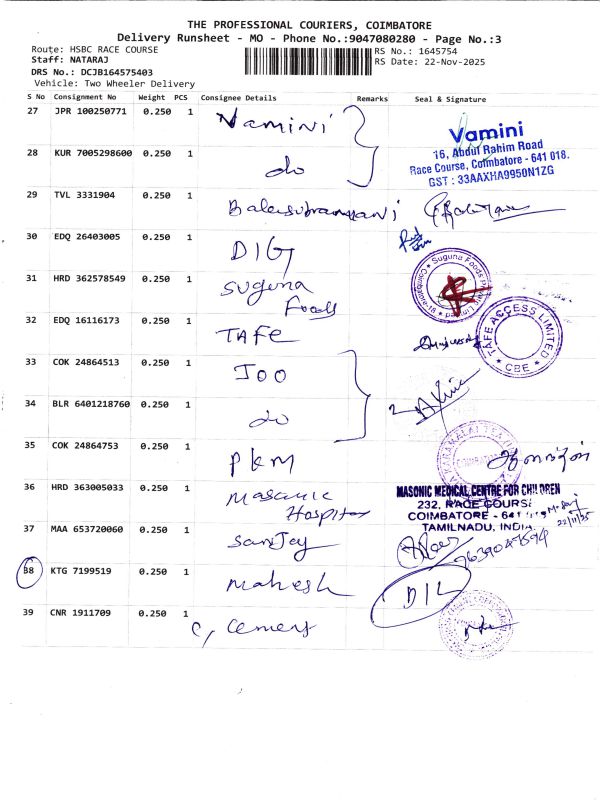 THE PROFESSIONAL COURIERS, COIMBATORE
Delivery Runsheet - MO - Phone No.:9047080280 - Page No.:3
Route: HSBC RACE COURSE
RS No.: 1645754
Staff: NATARAJ
RS Date: 22-Nov-2025
DRS No.: DCJB164575403
Vehicle: Two Wheeler Delivery
S No Consignment No Weight PCS Consignee Details Remarks Seal & Signature
27 JPR 100250771 0.250 1 Vamini
Vamini
16, Abdul Rahim Road
Race Course, Coimbatore - 641 018.
GST : 33AAXHA9950N1ZG
28 KUR 7005298600 0.250 1 do
29 TVL 3331904 0.250 1 Balasubramani
30 EDQ 26403005 0.250 1 DIG
31 HRD 362578549 0.250 1 Suguna
Foods
Suguna Foods Private Limited
Coimbatore
32 EDQ 16116173 0.250 1 TAFE
TAFE ACCESS LIMITED
CBE
33 COK 24864513 0.250 1 Joo
34 BLR 6401218760 0.250 1 do
35 COK 24864753 0.250 1 PKM
36 HRD 363005033 0.250 1 Masonic
Hospital
MASONIC MEDICAL CENTRE FOR CHILDREN
232, RACE COURSE
COIMBATORE - 641
TAMILNADU, INDIA.
22/11/25
37 MAA 653720060 0.250 1 Sanjay
38 KTG 7199519 0.250 1 Mahesh
D/L
39 CNR 1911709 0.250 1 C, Cemers